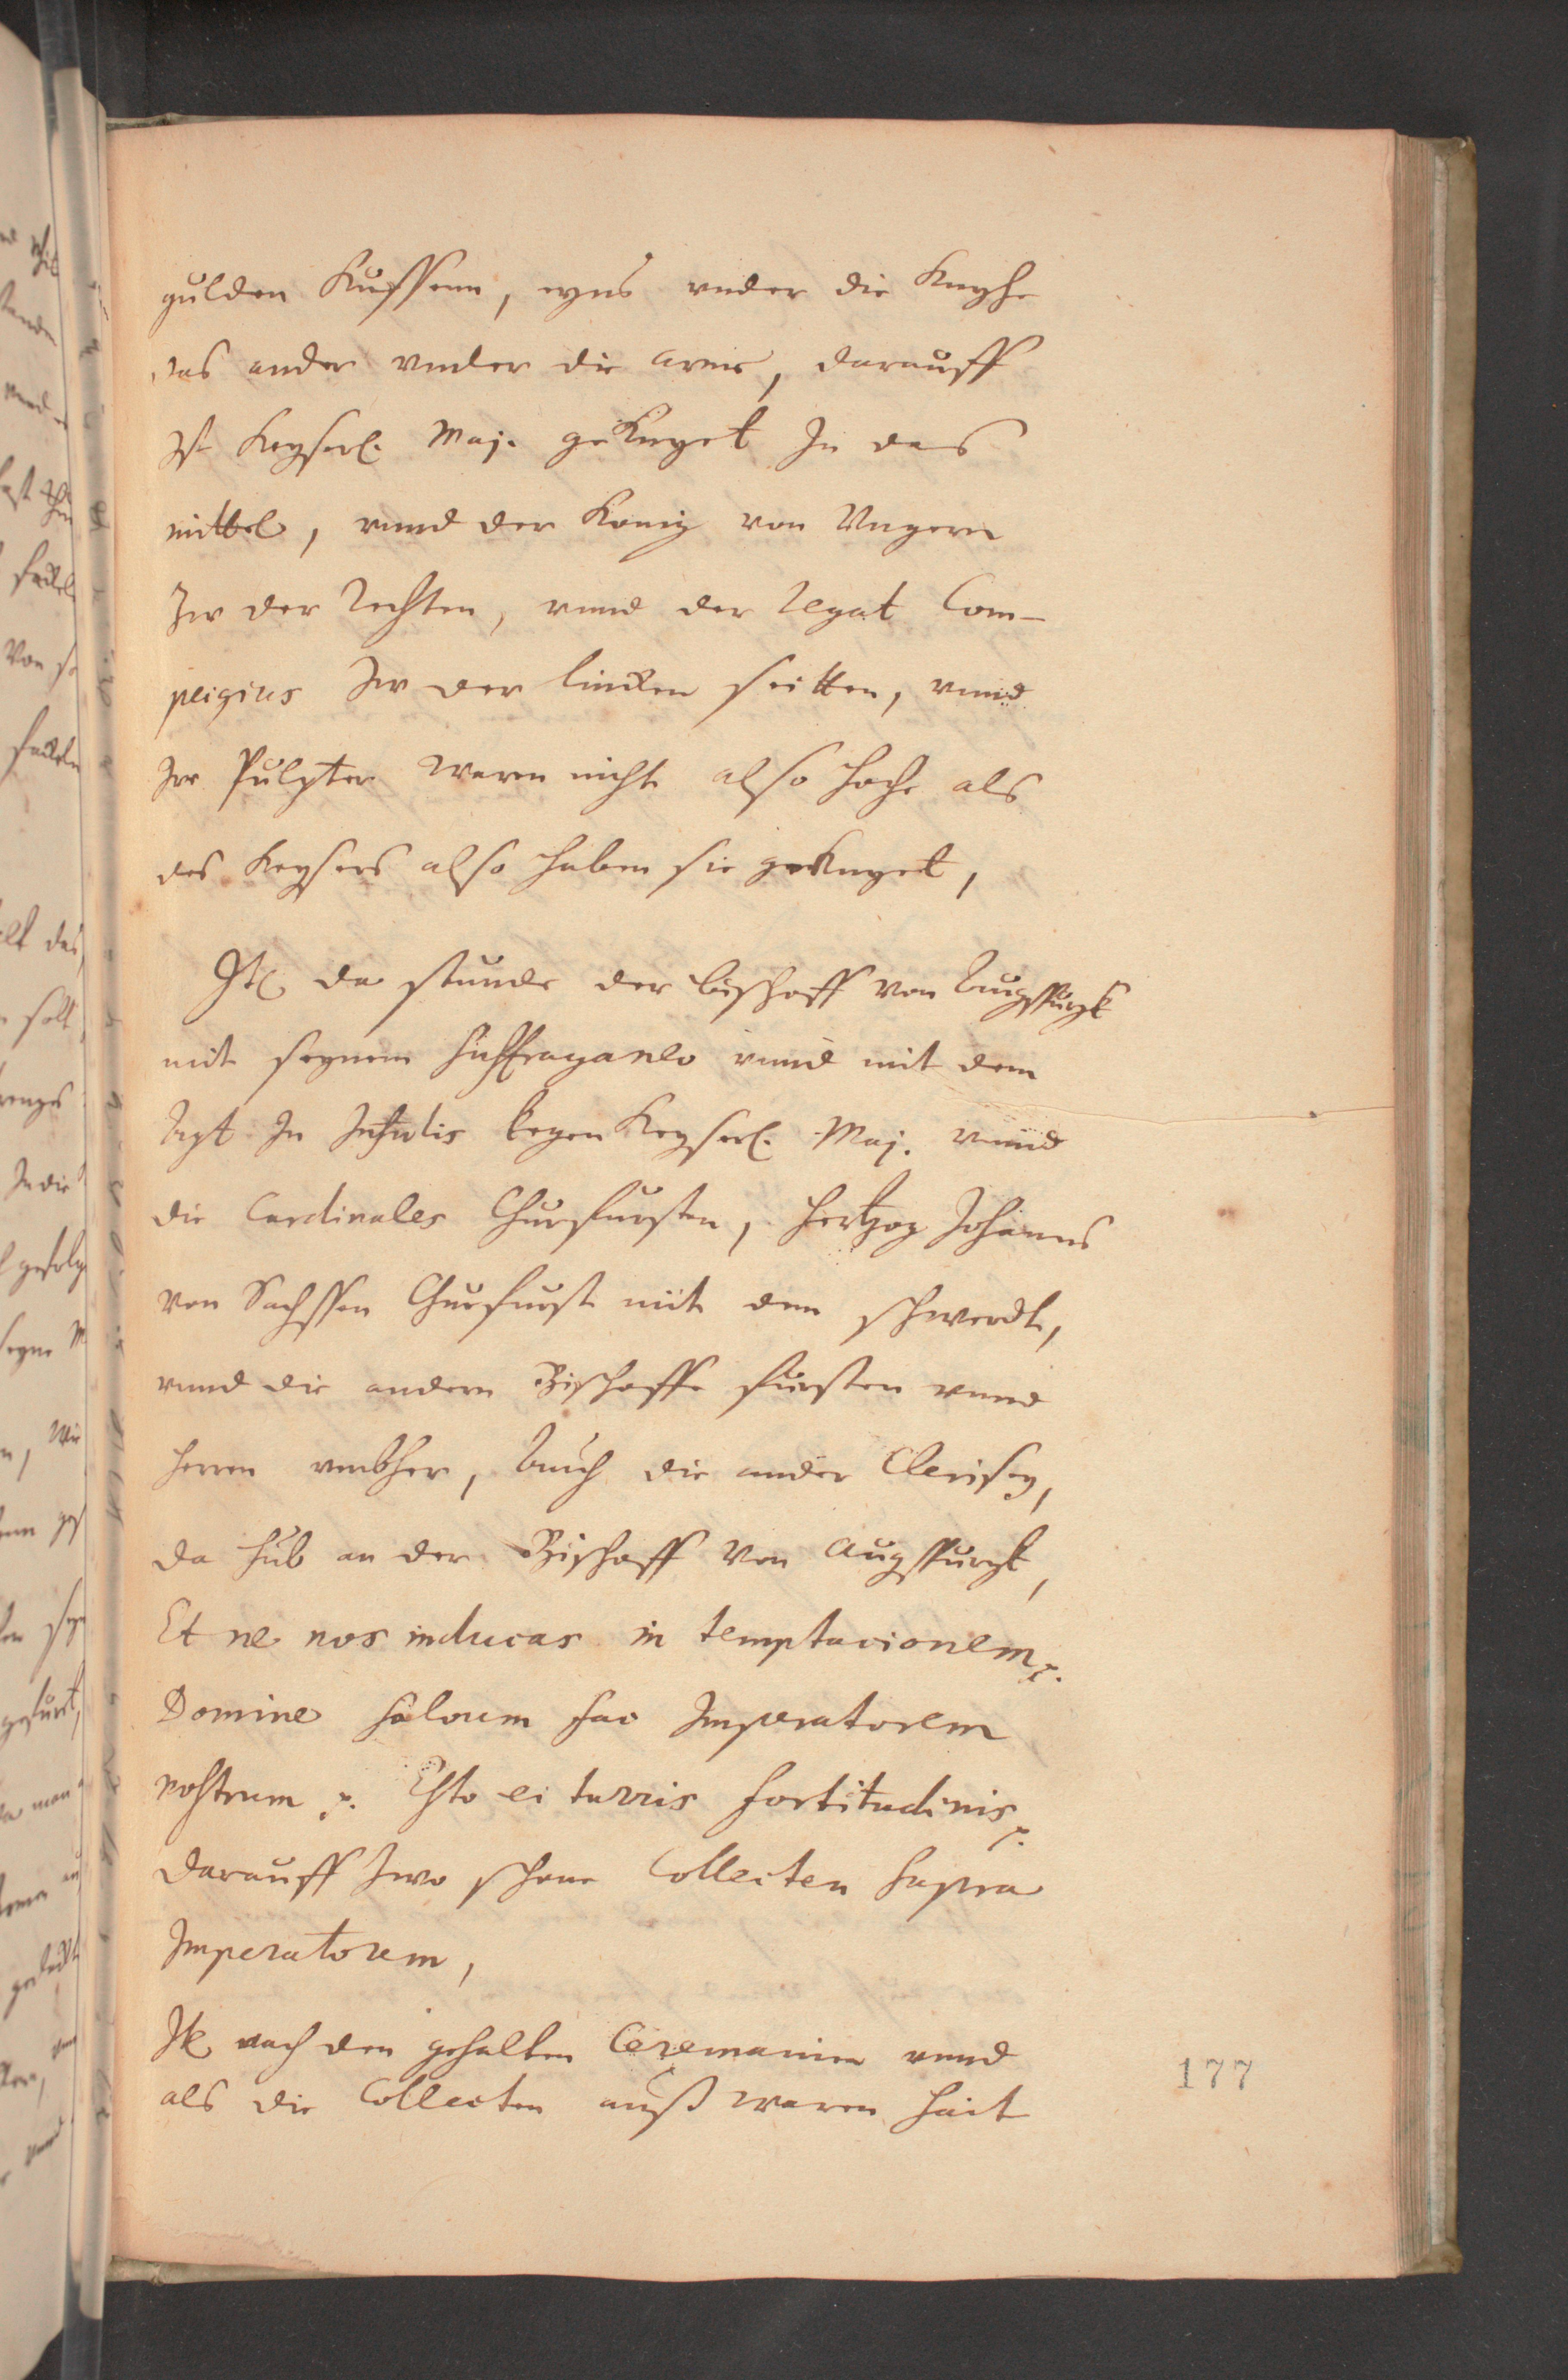 gulden Kussenn, eyns vnder die Knyhe
das ander vnder die arme, darauff
Ist Keyserl. Maj. geknyet In das
mittel, vnnd der Konig von Vngern
Zw der Rechten, vnnd der Legat Com-
pegius Zw der lincken seitten, vnnd
Ire Pulpter waren nicht also hoche als
des Keysers also haben sie geknyet,
Itl da stunde der bischoff von Augspurgk
mit seynem suffraganeo vnnd mit dem
Apt In Infulis kegen Keyserl. Maj. vnnd
die Cardinales Churfursten, Hertzog Johanns
von Sachssen Churfurst mit dem schwerdt,
vnnd die andern Bischoffe fursten vnnd
Herren vmbher, Auch die ander Clerisey,
da hub an der Bischoff von Augspurgk,
Et ne nos inducas in temptacionem ꝛ.
Domine salvum fac Imperatorem
nostrum ꝛ. Esto ei turris fortitudinis ꝛ.
darauff zwo schone Collecten supra
Imperatorem,
Itl nach den gehalten Ceremonien vnnd
als die Collecten auß waren hait
177